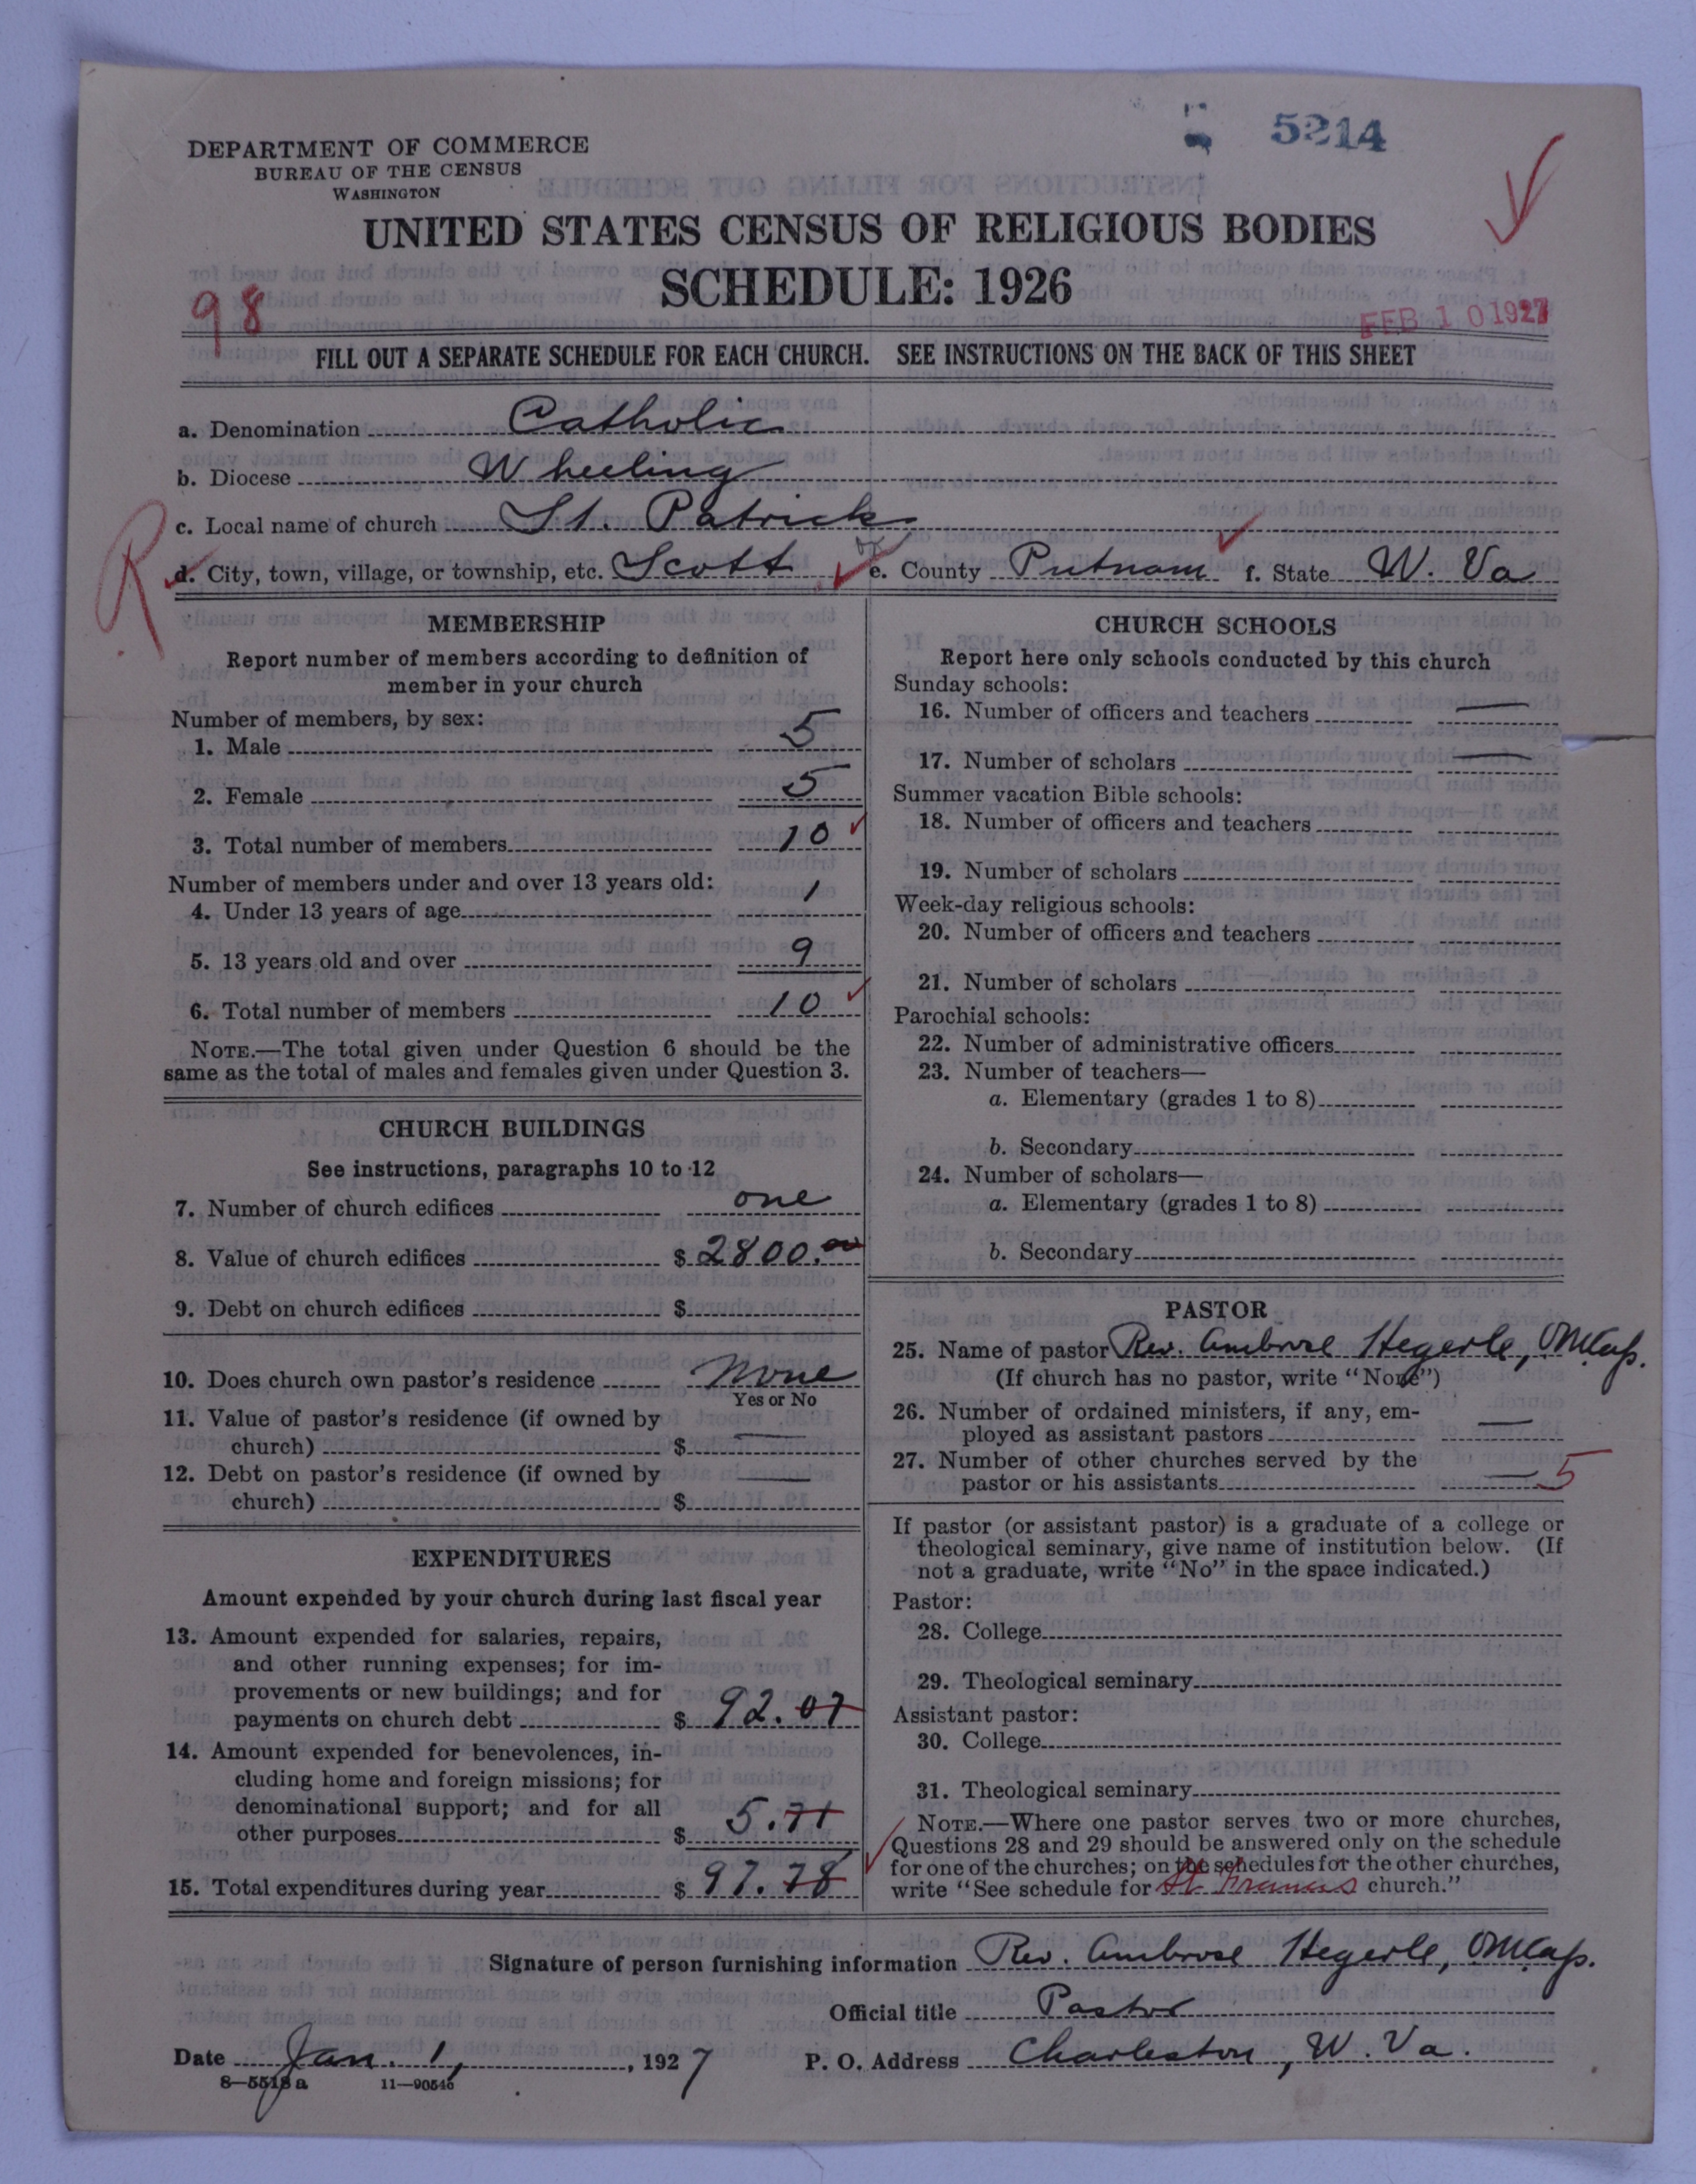 5214
DEPARTMENT OF COMMERCE
BUREAU OF THE CENSUS
WASHINGTON
UNITED STATES CENSUS OF RELIGIOUS BODIES
SCHEDULE: 1926
98
FEB 10 1927
FILL OUT A SEPARATE SCHEDULE FOR EACH CHURCH. SEE INSTRUCTIONS ON THE BACK OF THIS SHEET
a. Denomination Catholic
b. Diocese Wheeling
c. Local name of church St. Patrick
R
d. City, town, village, or township, etc. Scott e. County Putnam f. State W. Va
MEMBERSHIP
Report number of members according to definition of
member in your church
Number of members, by sex:
1. Male 5
2. Female 5
3. Total number of members 10
Number of members under and over 13 years old:
4. Under 13 years of age 1
5. 13 years old and over 9
6. Total number of members 10
NOTE.—The total given under Question 6 should be the
same as the total of males and females given under Question 3.
CHURCH BUILDINGS
See instructions, paragraphs 10 to 12
7. Number of church edifices one
8. Value of church edifices $ 2800.00
9. Debt on church edifices $
10. Does church own pastor's residence None
Yes or No
11. Value of pastor's residence (if owned by
church) $ —
12. Debt on pastor's residence (if owned by
church) $ —
EXPENDITURES
Amount expended by your church during last fiscal year
13. Amount expended for salaries, repairs,
and other running expenses; for im-
provements or new buildings; and for
payments on church debt $ 92.07
14. Amount expended for benevolences, in-
cluding home and foreign missions; for
denominational support; and for all
other purposes $ 5.71
15. Total expenditures during year $ 97.78
CHURCH SCHOOLS
Report here only schools conducted by this church
Sunday schools:
16. Number of officers and teachers —
17. Number of scholars —
Summer vacation Bible schools:
18. Number of officers and teachers
19. Number of scholars
Week-day religious schools:
20. Number of officers and teachers
21. Number of scholars
Parochial schools:
22. Number of administrative officers
23. Number of teachers—
a. Elementary (grades 1 to 8)
b. Secondary
24. Number of scholars—
a. Elementary (grades 1 to 8)
b. Secondary
PASTOR
25. Name of pastor Rev. Ambrose Hegerle, OMCap.
(If church has no pastor, write "None")
26. Number of ordained ministers, if any, em-
ployed as assistant pastors —
27. Number of other churches served by the
pastor or his assistants — 5
If pastor (or assistant pastor) is a graduate of a college or
theological seminary, give name of institution below. (If
not a graduate, write "No" in the space indicated.)
Pastor:
28. College
29. Theological seminary
Assistant pastor:
30. College
31. Theological seminary
NOTE.—Where one pastor serves two or more churches,
Questions 28 and 29 should be answered only on the schedule
for one of the churches; on the schedules for the other churches,
write "See schedule for St. Francis church."
Signature of person furnishing information Rev. Ambrose Hegerle, OMCap.
Official title Pastor
Date Jan. 1, 1927 P. O. Address Charleston, W. Va.
8—5518a 11—90546